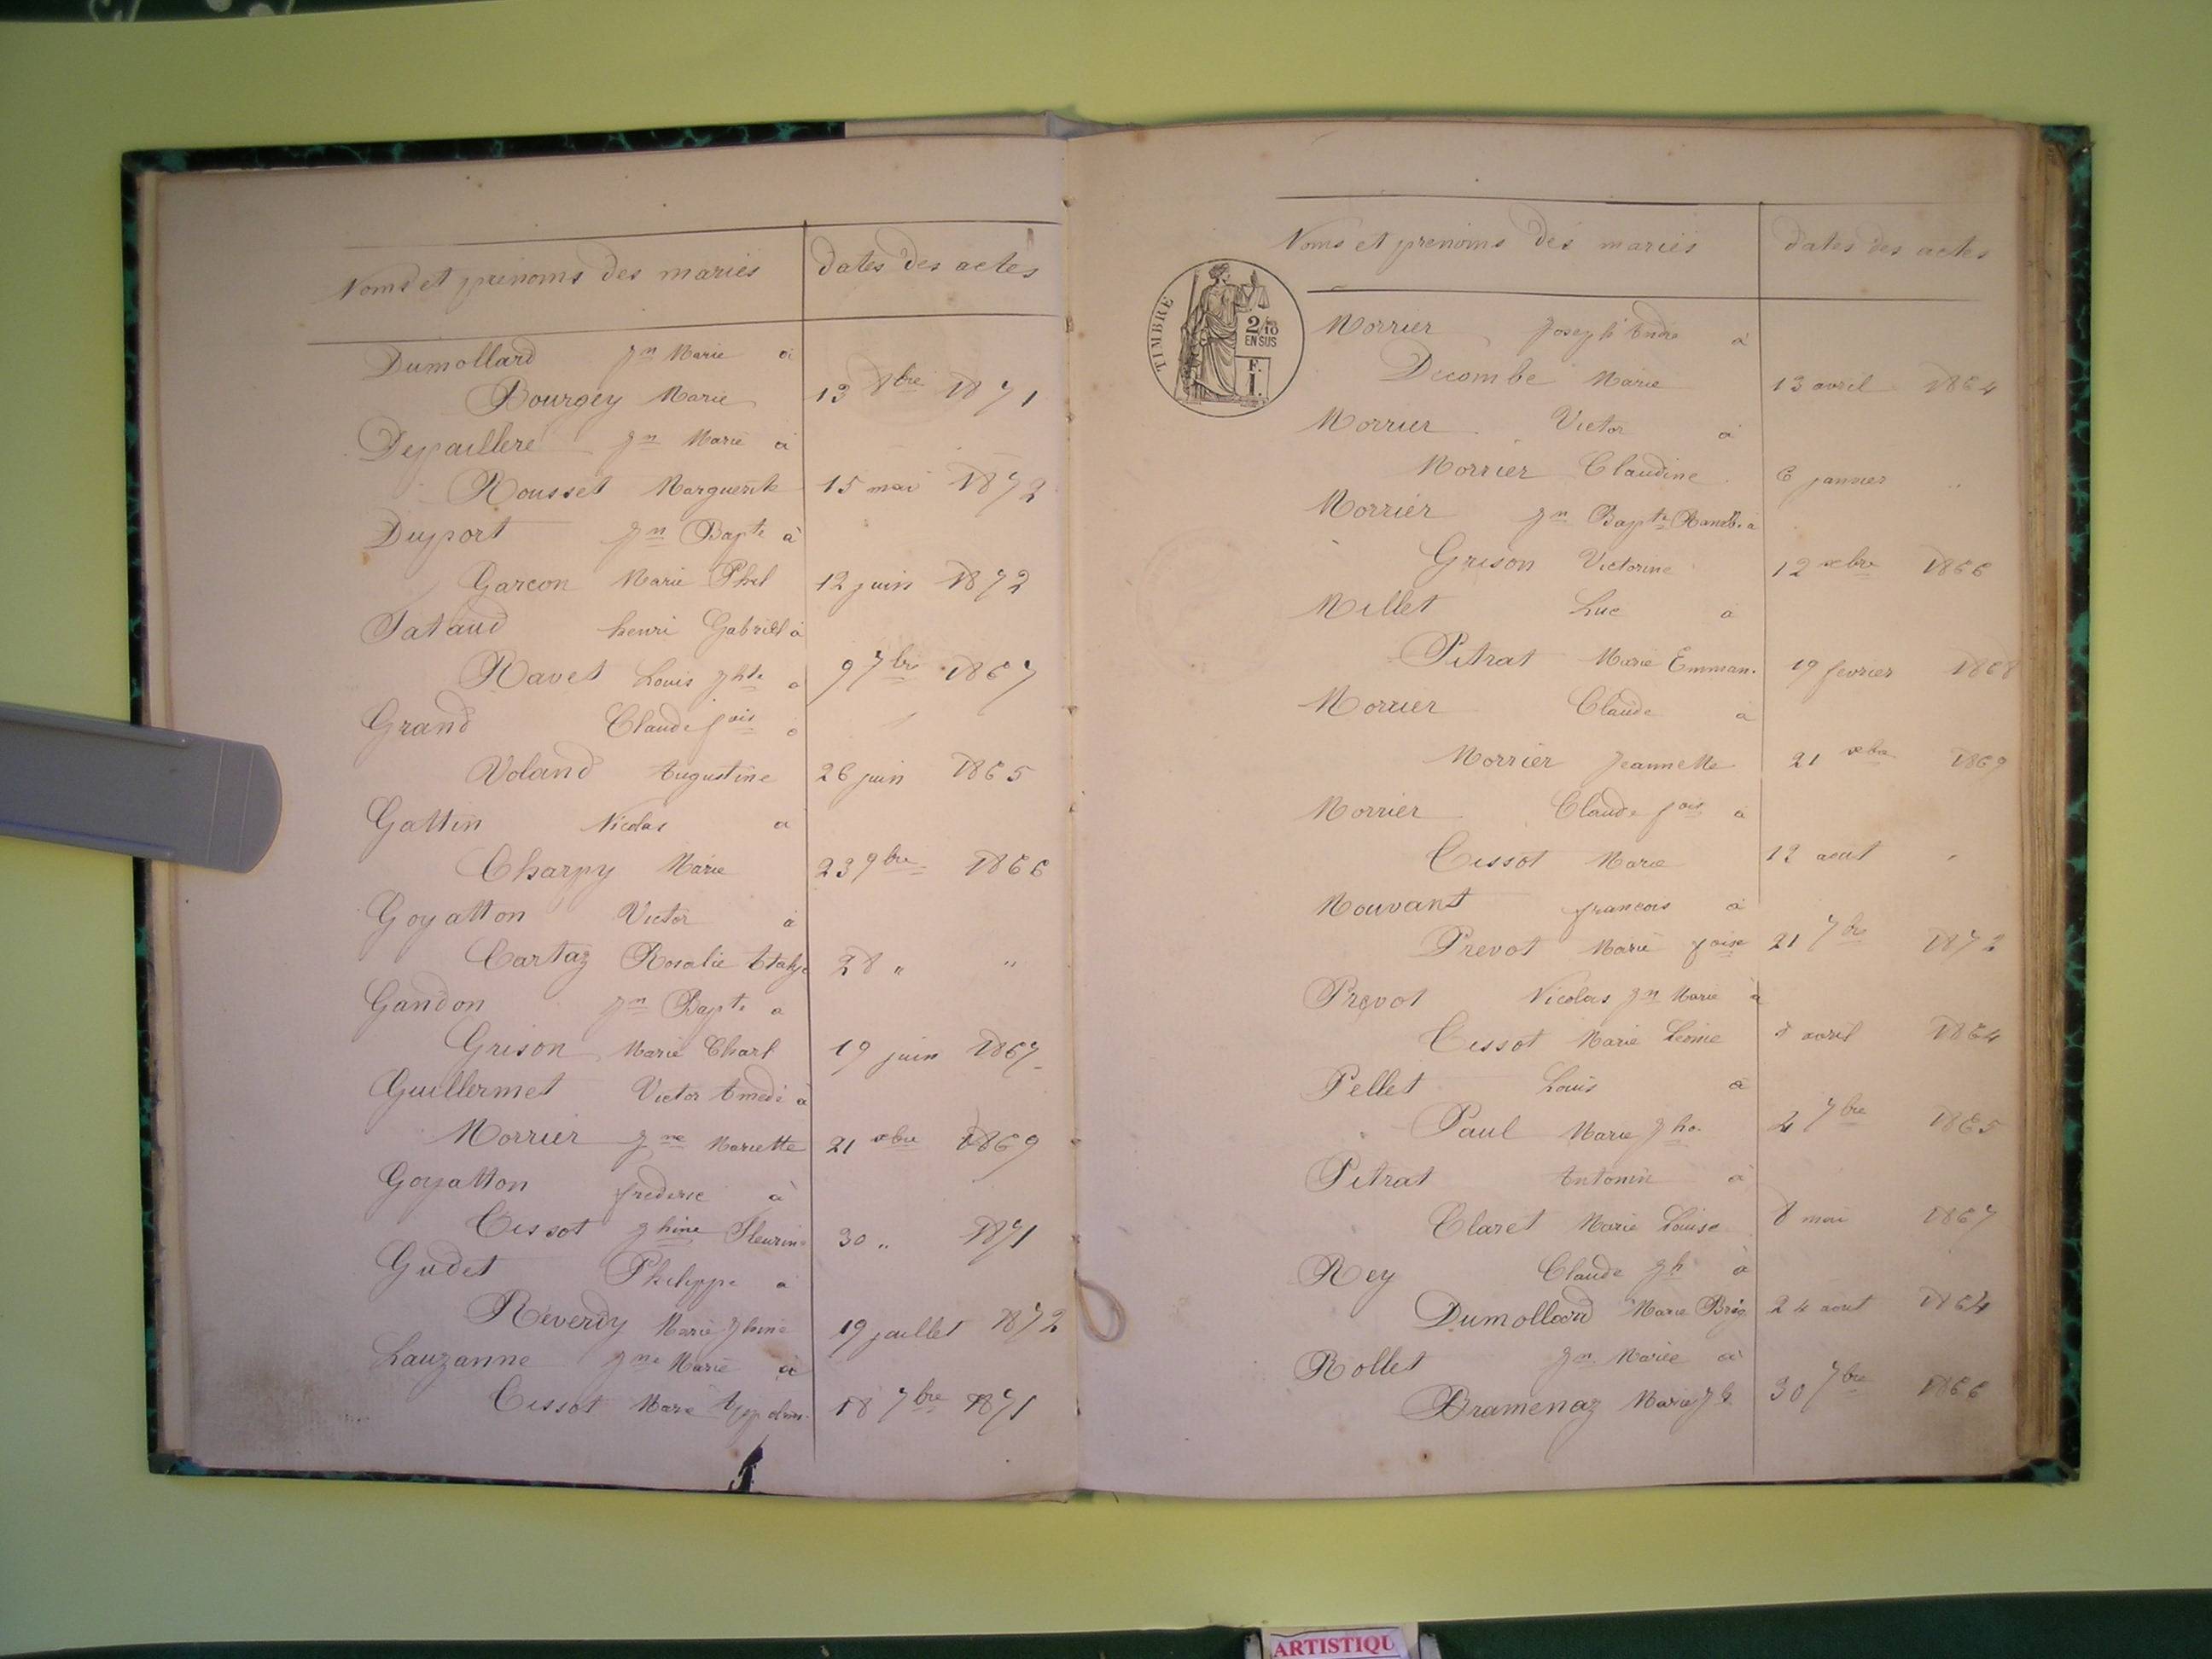 Noms et prenoms des mariés dates des actes
Dumollard jn Marie à
Bourgey Marie 13 8bre 1871
Depaillere jn Marie à
Rousset Marguerite 15 mai 1872
Duport jn Bapte à
Garcon Marie Phil 12 juin 1872
Henri Gabriel à
Ravet Louis jhte à 9 7bre 1867
Grand Claude fois à
Voland Augustine 26 juin 1865
Gattin Nicolas à
Charpy Marie 23 9bre 1866
Goyatton Victor à
Cartaz Rosalie 28 " "
Gandon jn Bapte à
Grison Marie Charl 19 juin 1867
Guillermet Victor Amedé à
Morrier jne Mariette 21 xbre 1869
Goyatton frederic à
Cissot jhine Fleurine 30 " 1871
Gudet Philippe à
Reverdy Marie jhine 19 juillet 1872
Lauzanne jne Marie à
Cissot Marie 18 7bre 1871
Noms et prenoms des mariés dates des actes
TIMBRE
2/10
EN SUS
F.
1.
Morrier Joseph André à
Decombe Marie 13 avril 1864
Morrier Victor à
Morrier Claudine 6 janvier "
Morrier jn Bapte à
Grison Victorine 12 xbre 1866
Millet Luc à
Pitrat Marie Emman. 19 fevrier 1868
Morrier Claude à
Morrier Jeannette 21 xbre 1869
Morrier Claude fois à
Cissot Marie 12 aout "
Mouvant francois à
Prevot Marie foise 21 7bre 1872
Prevot Nicolas jn Marie à
Cissot Marie Léonie 8 avril 1864
Pellet Louis à
Paul Marie jhe 4 7bre 1865
Pitrat Antonin à
Claret Marie Louise 8 mai 1867
Rey Claude jh à
Dumollard Marie Brig 24 aout 1864
Rollet jn Marie à
Bramenaz Marie jh 30 7bre 1866
ARTISTIQU